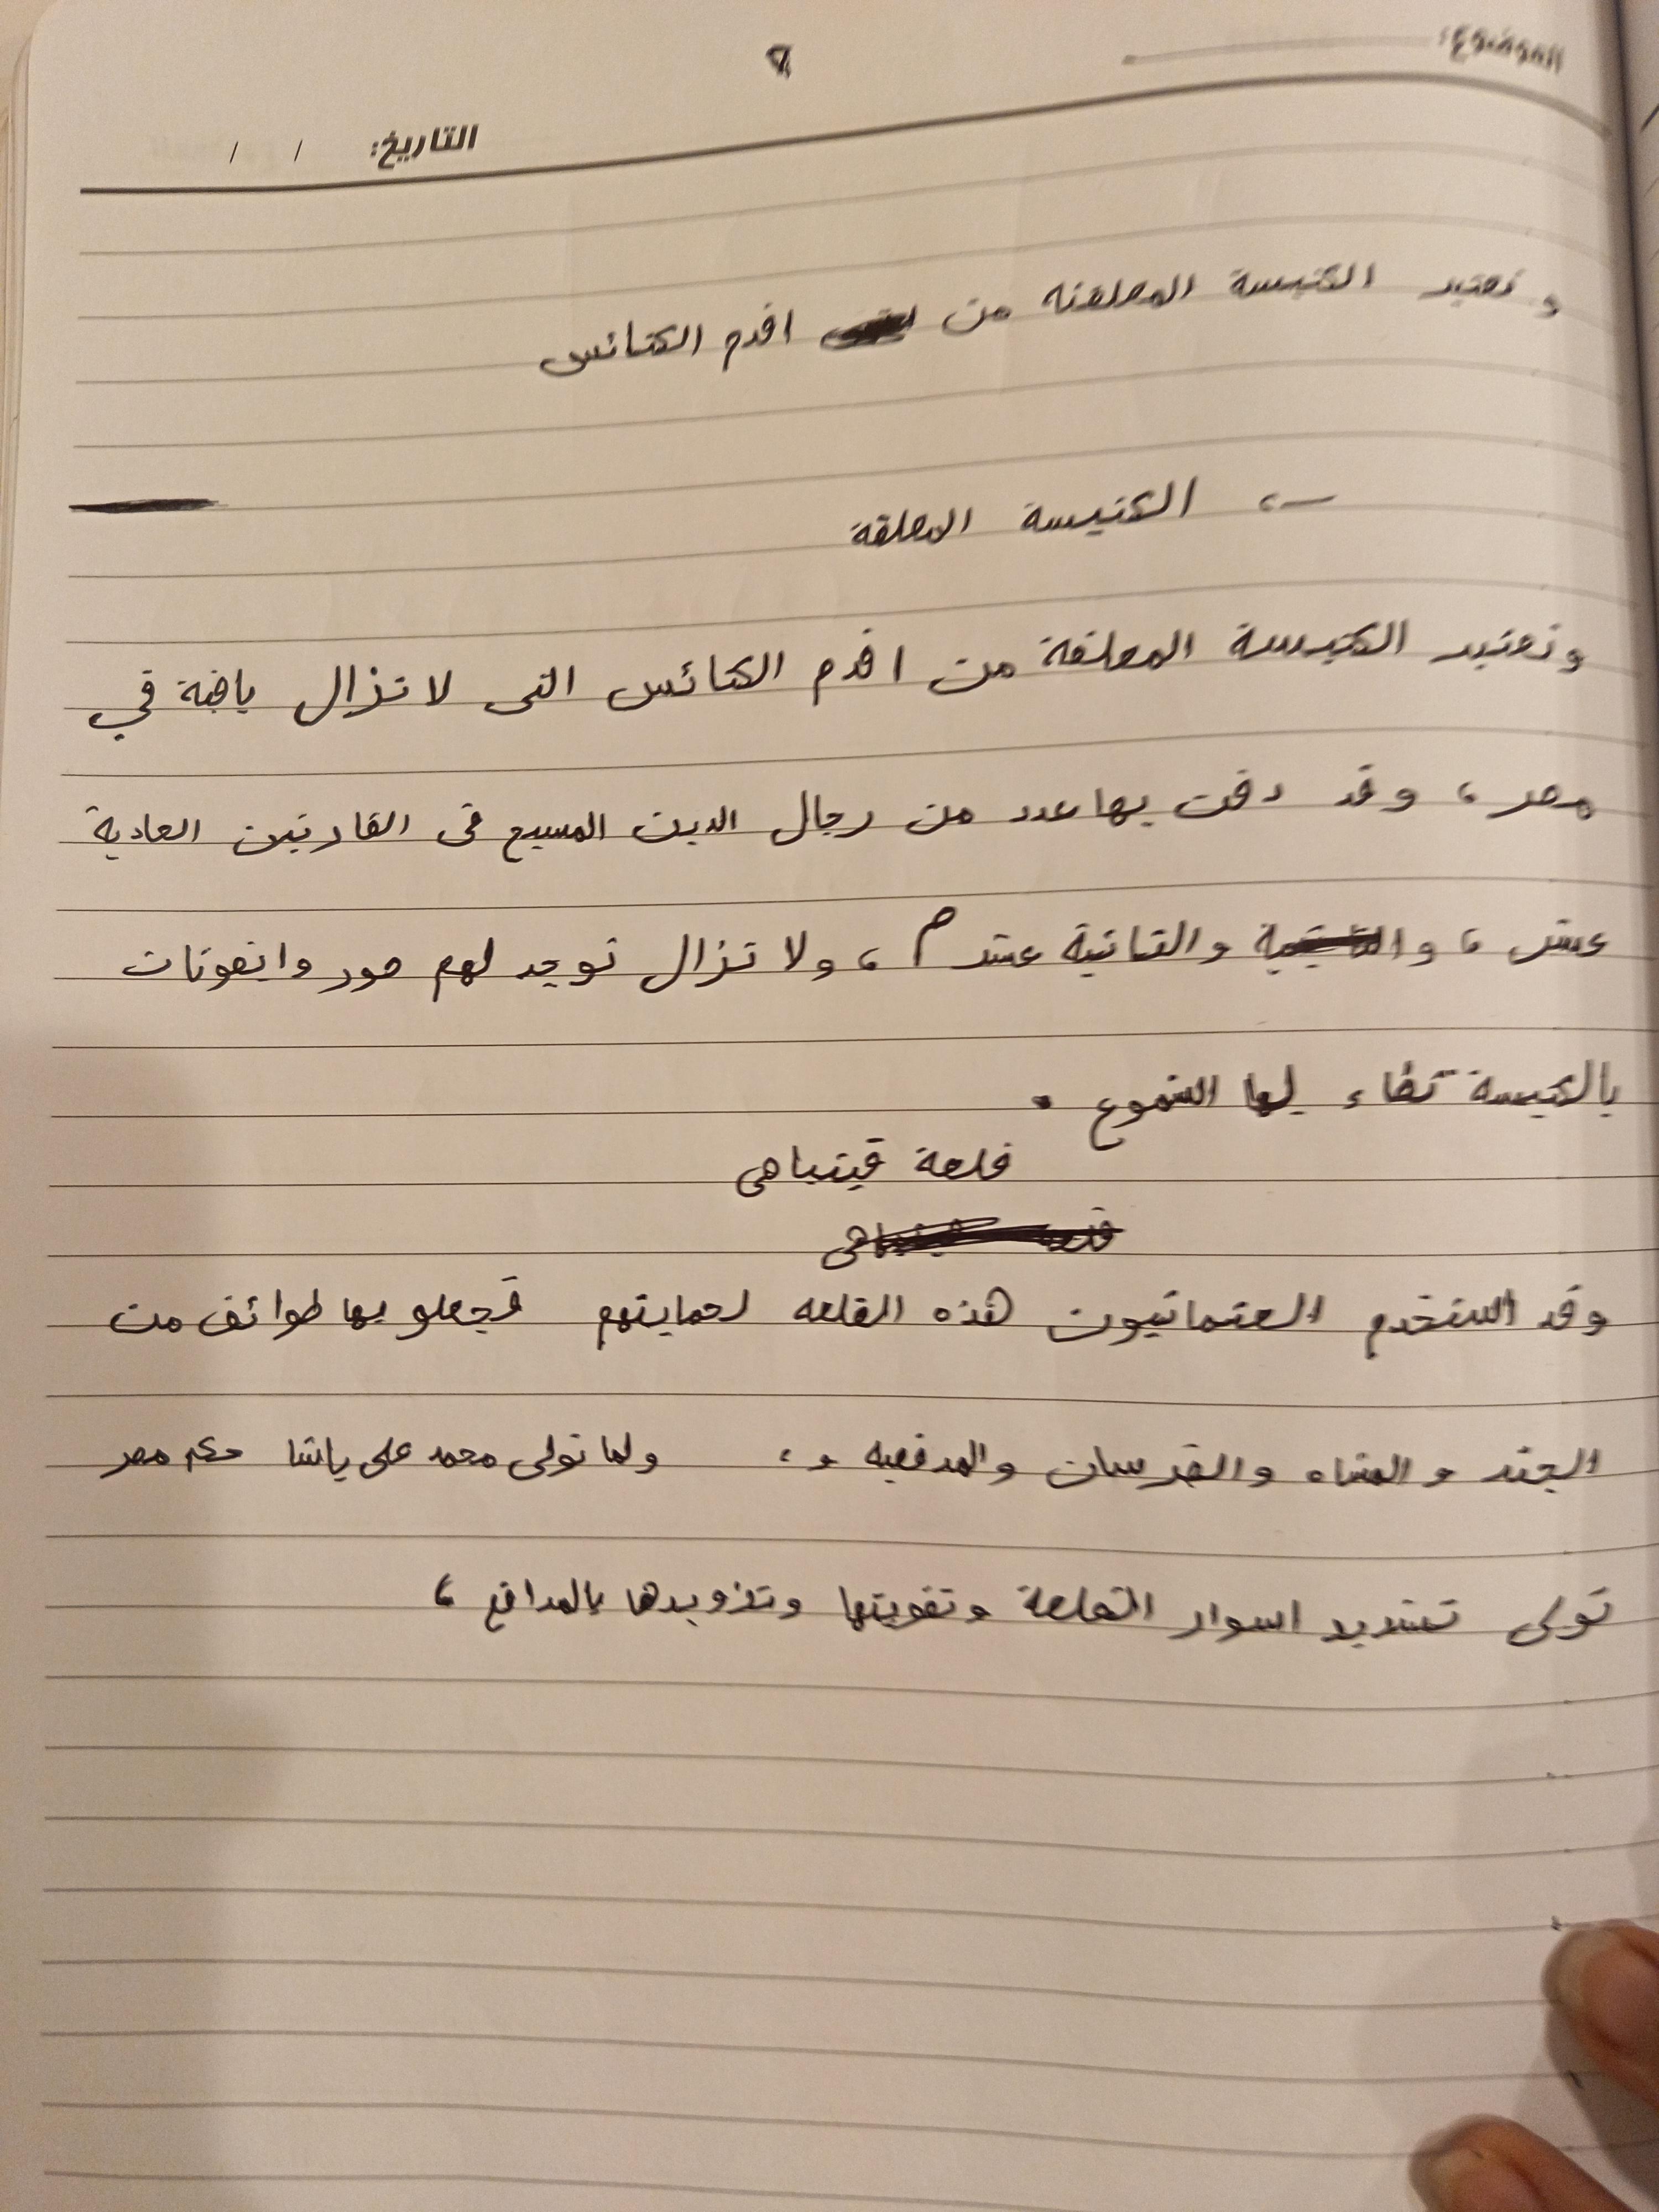 الموضوع:
٩
التاريخ: / /
وتعتبر الكنيسة المعلقة من اقدم الكنائس
ـ، الكنيسة المعلقة
وتعتبر الكنيسة المعلقة من اقدم الكنائس التى لا تزال باقية في
مصر، وقد دفن بها عدد من رجال الدين المسيح فى القارنين الحادية
عشر، والثانية عشر م، ولا تزال توجد لهم صور وايقونات
بالكنيسة تضاء لها الشموع .
قلعة قيتباهى
وقد استخدم العثمانيون هذه القلعه لحمايتهم فجعلو بها طوائف من
الجند و المشاه والفرسان والمدفعيه و، ولما تولى محمد على باشا حكم مصر
تولى تشديد اسوار القلعة وتقويتها وتزويدها بالمدافع،